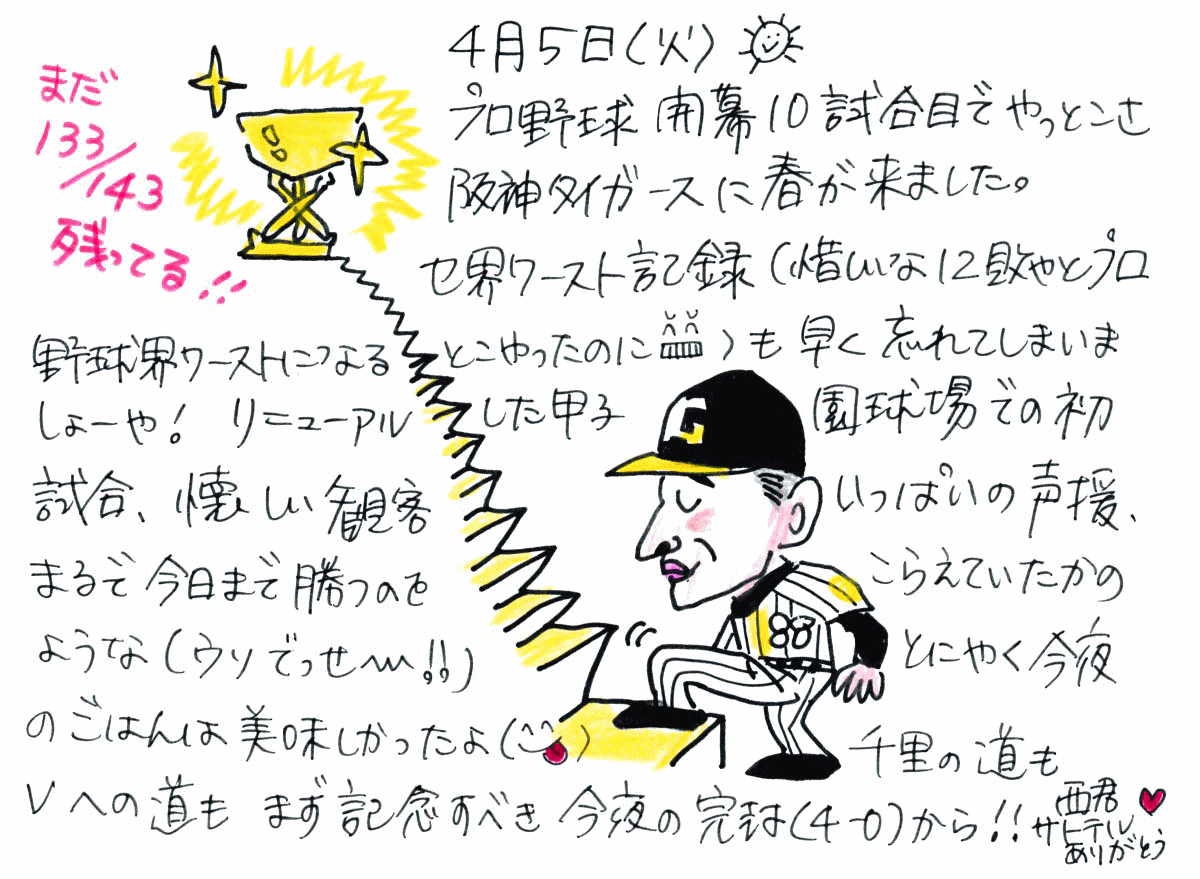 4月5日(火)
プロ野球 開幕10試合目でやっとこさ
阪神タイガースに春が来ました。
セ界ワースト記録(惜しいな12敗やとプロ
野球界ワーストになる とこやったのに)も早く忘れてしまいま
しょーや! リニューアル した甲子 園球場での初
試合、懐しい観客 いっぱいの声援、
まるで今日まで勝つのを こらえていたかの
ような(ウソでっせ〜!!) とにやく今夜
のごはんは美味しかったよ( ) 千里の道も
Vへの道も まず記念すべき今夜の完封(4-0)から!!
西君
サトテル
ありがとう
まだ
133/143
残ってる!!
88